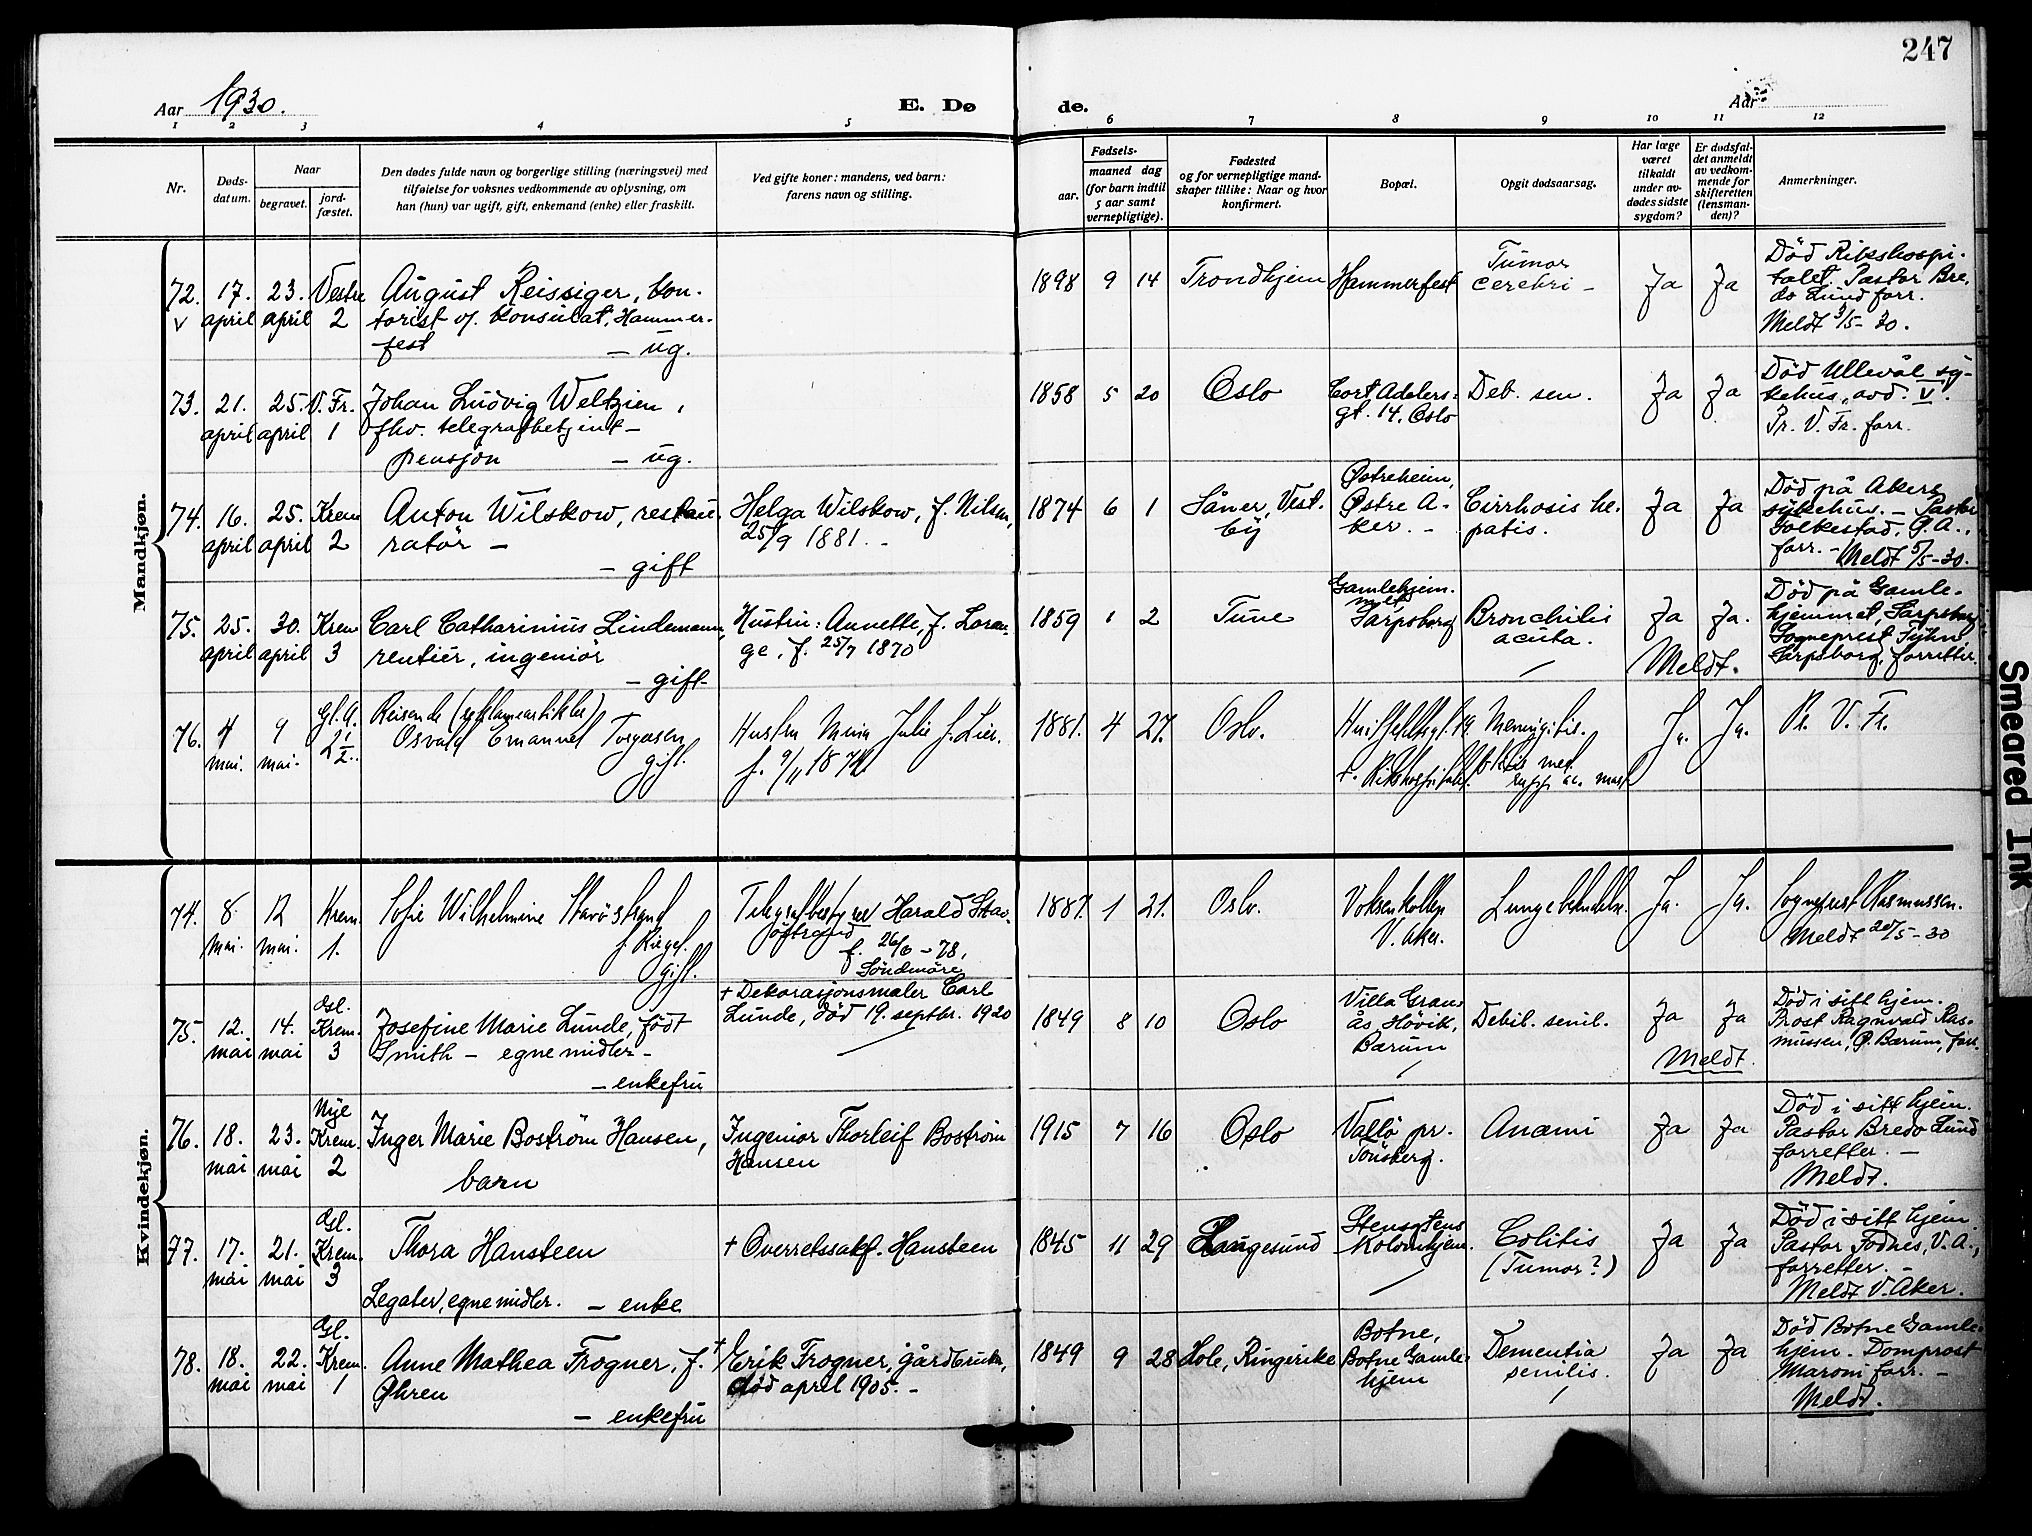 247
Aar 1930.
E. Dø
de.
Aar
1 2 3 4 5 6 7 8 9 10 11 12
Nr.
Døds-
datum.
Naar
begravet.
jord-
fæstet.
Den dødes fulde navn og borgerlige stilling (næringsvei) med
tilføielse for voksnes vedkommende av oplysning, om
han (hun) var ugift, gift, enkemand (enke) eller fraskilt.
Ved gifte koner: mandens, ved barn:
farens navn og stilling.
Fødsels-
aar.
maaned dag
(for barn indtil
5 aar samt
vernepligtige).
Fødested
og for vernepligtige mand-
skaper tillike: Naar og hvor
konfirmert.
Bopæl.
Opgit dødsaarsag.
Har læge
været
tilkaldt
under av-
dødes sidste
sygdom?
Er dødsfal-
det anmeldt
av vedkom-
mende for
skifteretten
(lensman-
den)?
Anmerkninger.
Mandkjøn.
72. 17. 23. Vestre
v april april 2
August Reissiger, kon-
torist v. konsulat, Hammer-
fest — ug.
1898 9 14 Trondhjem Hammerfest
Tumor
cerebri —
Ja Ja
Død Rikshospi-
talet. Pastor Bre-
do Lund forr.
Meldt 3/5-30.
73. 21. 25. V. Fr.
april april 1
Johan Ludvig Weltzien,
fhv. telegrafbetjent —
pensjon — ug.
1858 5 20 Oslo
Cort Adelers-
gt. 14, Oslo
Deb. sen.
Ja Ja
Død Ullevål sy-
kehus, avd. V.
Pr. V. Fr. forr.
74. 16. 25. Krem
april april 2
Anton Wilskow, restau-
ratør —
— gift
Helga Wilskow, f. Nilsen,
25/9 1881. —
1874 6 1
Såner, Vest-
by
Østreheim,
Østre A-
ker. —
Cirrhosis he-
patis.
Ja Ja
Død på Akers
sykehus. — Pastor
Solkestad, Ø.A.,
forr. — Meldt 5/5-30.
75. 25. 30. Krem
april april 3
Carl Catharinius Lindemann,
rentier, ingeniør
— gift —
Hustru: Annette, f. Loran-
ge, f. 25/7 1870
1859 1 2 Tune
Gamlehjem-
met
Sarpsborg
Bronchitis
acuta.
Ja Ja.
Meldt.
Død på Gamle-
hjemmet, Sarpsborg
Sogneprest
Sarpsborg, forretter.
76. 4 9 Gl. A.
mai. mai. 2
Reisende (reklameartikler)
Osvald Emanuel Torgersen
gift.
Hustru Julie f. Lier.
f. 9/11 1874.
1881. 4 27. Oslo.
+. Rikshospitalet.
Meningitis.
Ja. Ja.
Pr. V. Fr.
Kvindekjøn.
74. 8. 12 Krem.
mai. mai. 1.
Sofie Wilhelmine Stavøstrand
gift.
Telegrafbestyrer Harald Stav-
østrand
f. 26/6 - 78,
Søndmøre
1887. 1 21. Oslo.
Voksenkollen
V. Aker.
Ja. Ja.
Sogneprest Rasmussen.
Meldt 20/5-30
75. 12. 14. Gl.
mai mai Krem.
3
Josefine Marie Lunde, født
Smith — egne midler —
— enkefru
+ Dekorasjonsmaler Carl
Lunde, død 19. septbr. 1920
1849 8 10 Oslo
Villa Gran-
ås, Høvik,
Bærum
Debil. senil.
Ja Ja
Meldt.
Død i sitt hjem.
Prost Ragnvald Ras-
mussen, Ø. Bærum, forr.
76. 18. 23. Nye
mai mai Krem.
2
Inger Marie Boström Hansen,
barn
Ingeniør Thorleif Boström
Hansen
1915 7 16 Oslo
Vallø pr.
Tönsberg.
Anæmi
Ja Ja
Død i sitt hjem.
Pastor Bredo Lund
forretter. —
Meldt.
77. 17. 21. Gl.
mai mai Krem.
3
Thora Hansteen
Legater, egne midler. — enke
+ Overretssakf. Hansteen
1845 11 29 Langesund
Colitis
(Tumor?)
Ja Ja
Død i sitt hjem
Pastor Fodnes, V.A.,
forretter. —
Meldt V. Aker.
78. 18. 22. Gl.
mai mai Krem.
1
Anne Mathea Frogner, f.
Øhren
— enkefru
+ Erik Frogner, gårdbruker,
død april 1905. —
1849 9 28 Hole, Ringerike
Botne,
Botne Gamle-
hjem
Dementia
senilis.
Ja Ja
Død Botne Gamle-
hjem. Domprost
Maroni forr. —
Meldt.
Smeared Ink